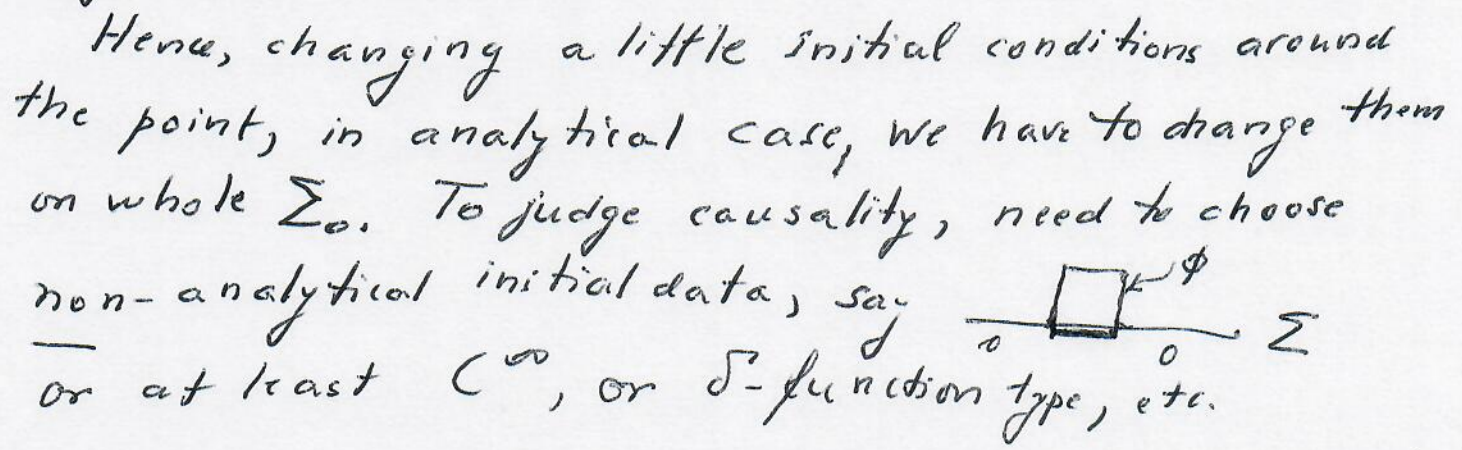 Hence, changing a little initial conditions around
the point, in analytical case, we have to change them
on whole Σ₀. To judge causality, need to choose
non-analytical initial data, say 0 0 ϕ Σ
or at least C^∞, or δ-function type, etc.